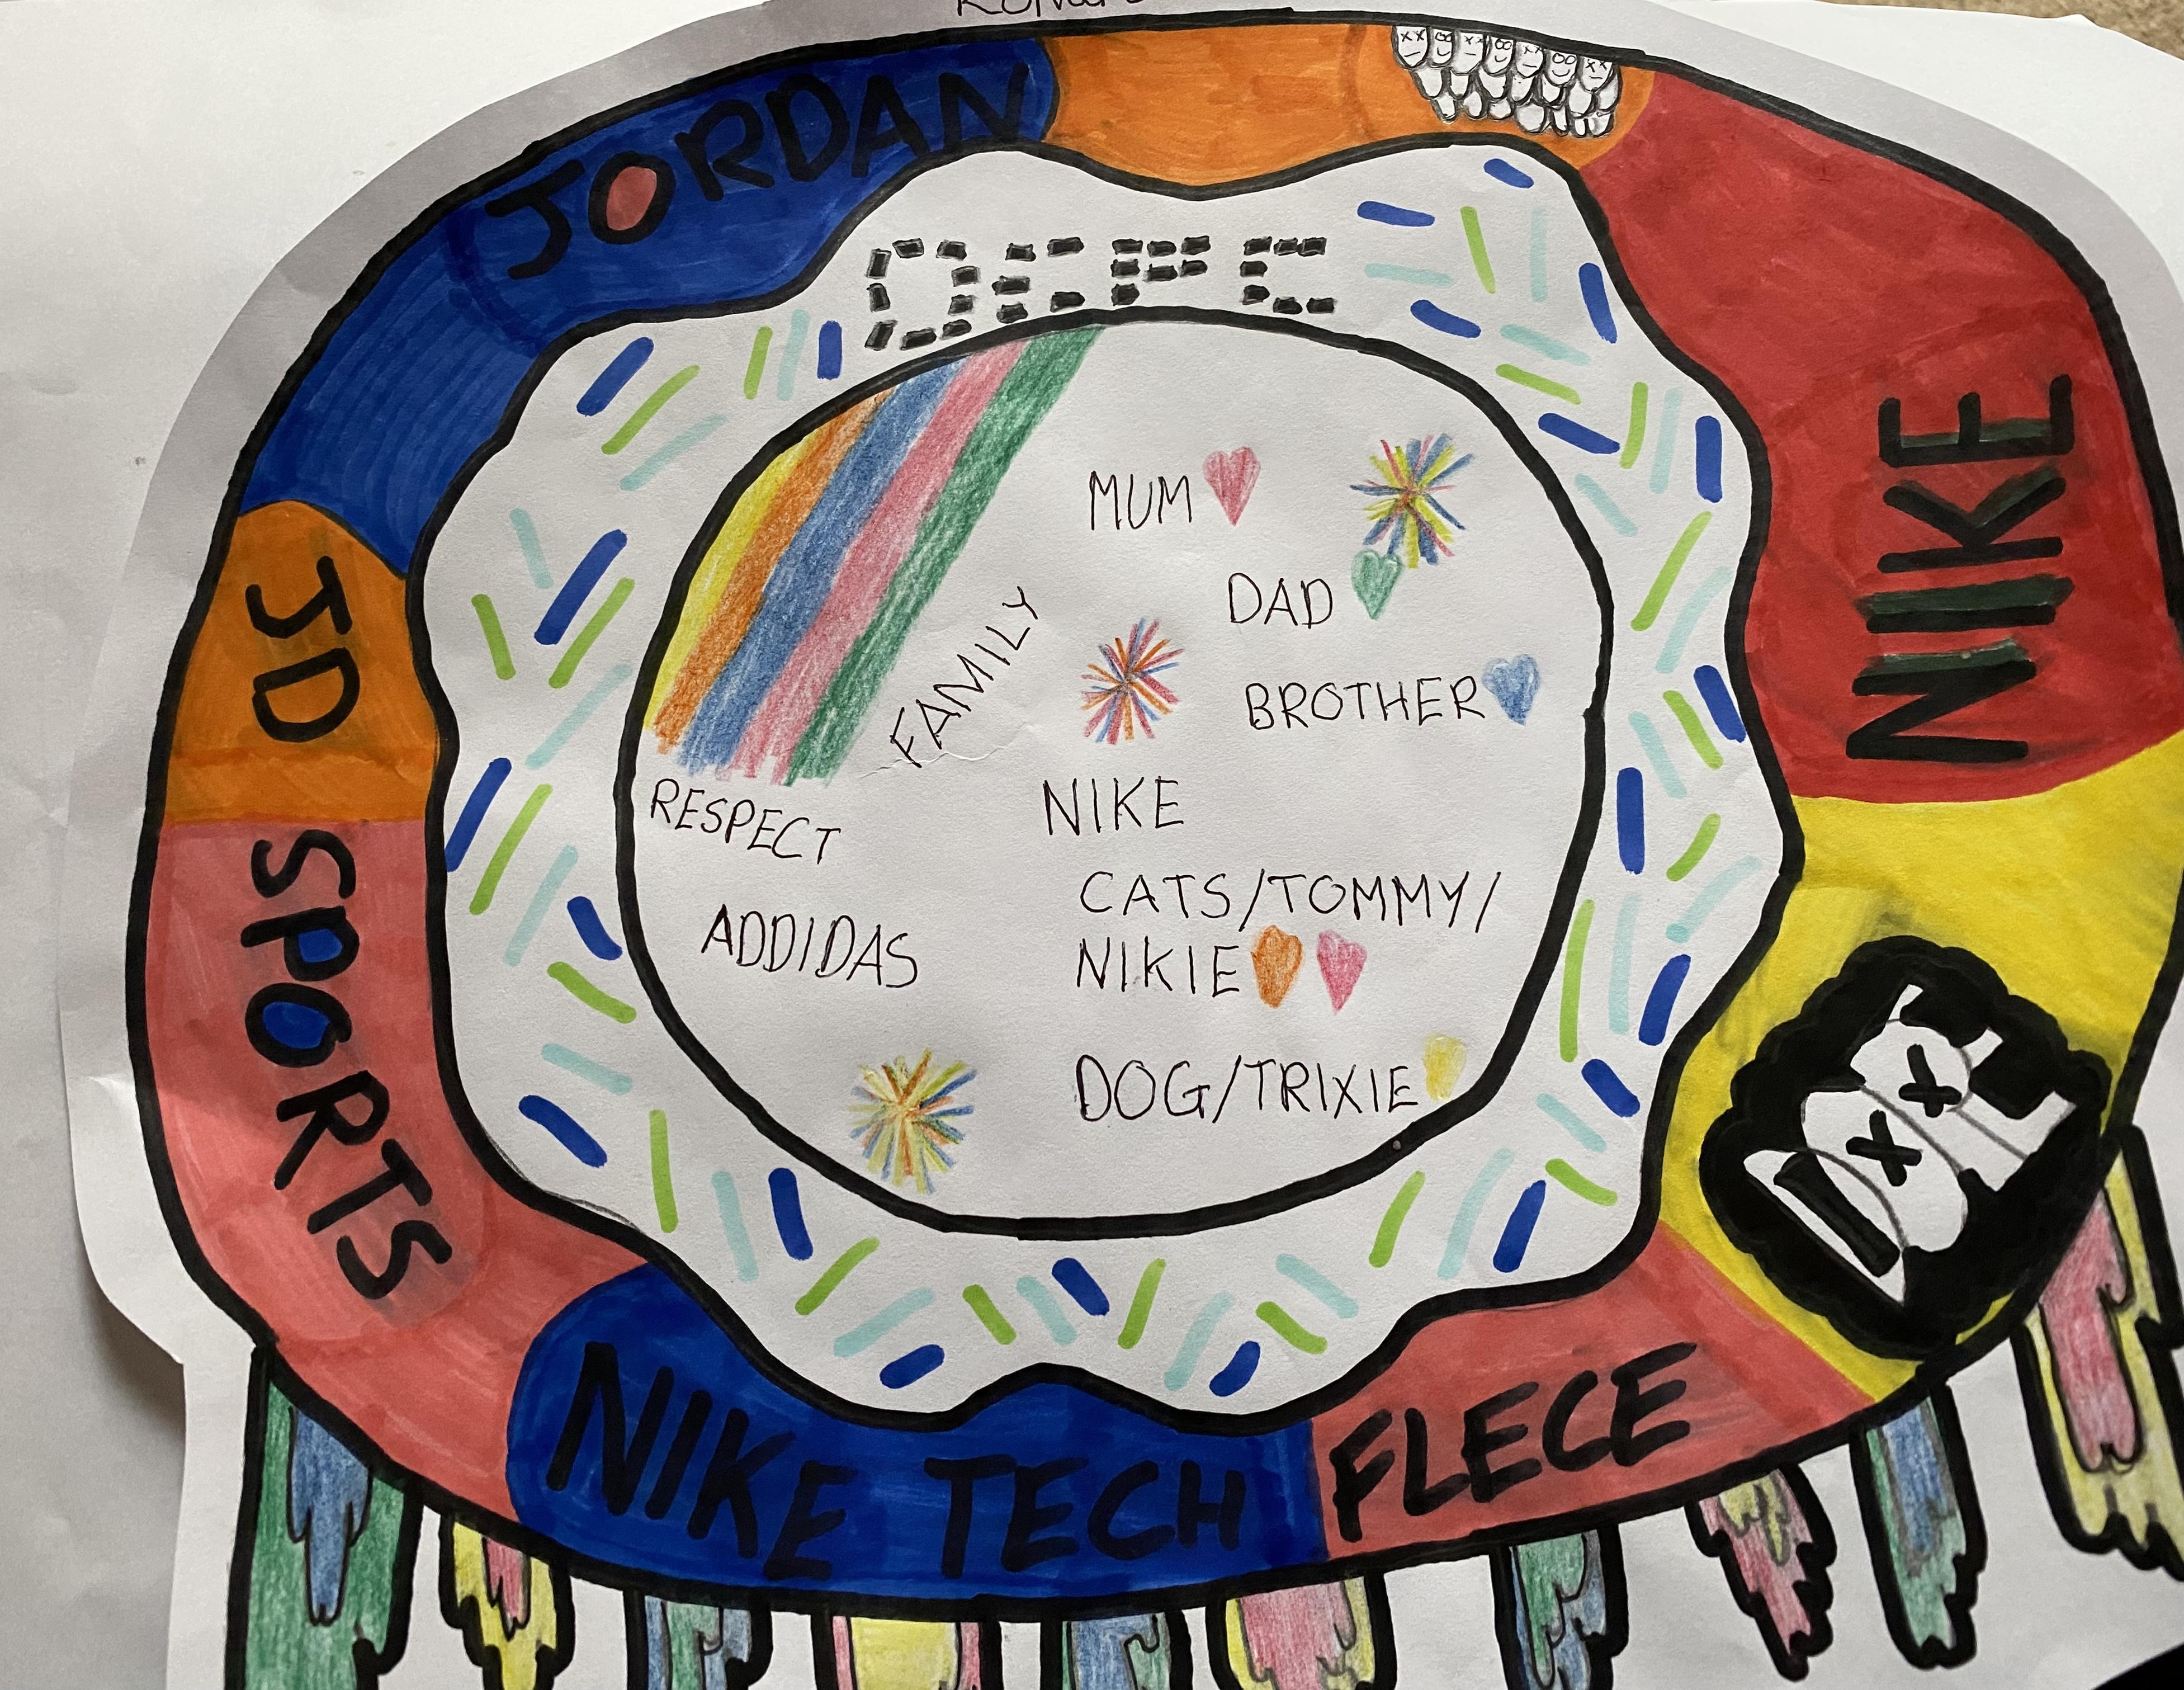 JORDAN
NIKE
FLECE
NIKE TECH
JD
SPORTS
MUM
DAD
BROTHER
FAMILY
RESPECT
NIKE
ADDIDAS
CATS/TOMMY/
NIKIE
DOG/TRIXIE